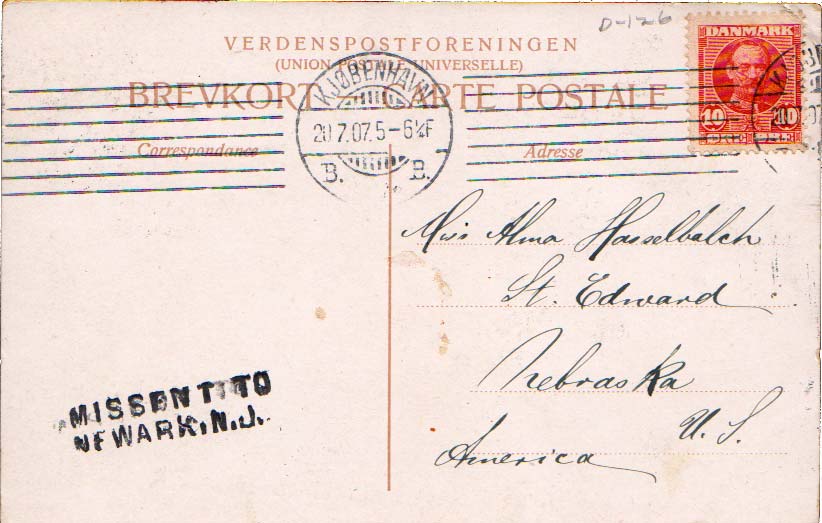 D-126
VERDENSPOSTFORENINGEN
(UNION POSTALE UNIVERSELLE)
BREVKORT CARTE POSTALE
Correspondance
Adresse
DANMARK
10 10
KJØBENHAVN
20.7.07.5-6¼F
B. B.
Miss Alma Hasselbalch
St. Edward
Nebraska
U. S.
America
MISSENT TO
NEWARK, N.J.